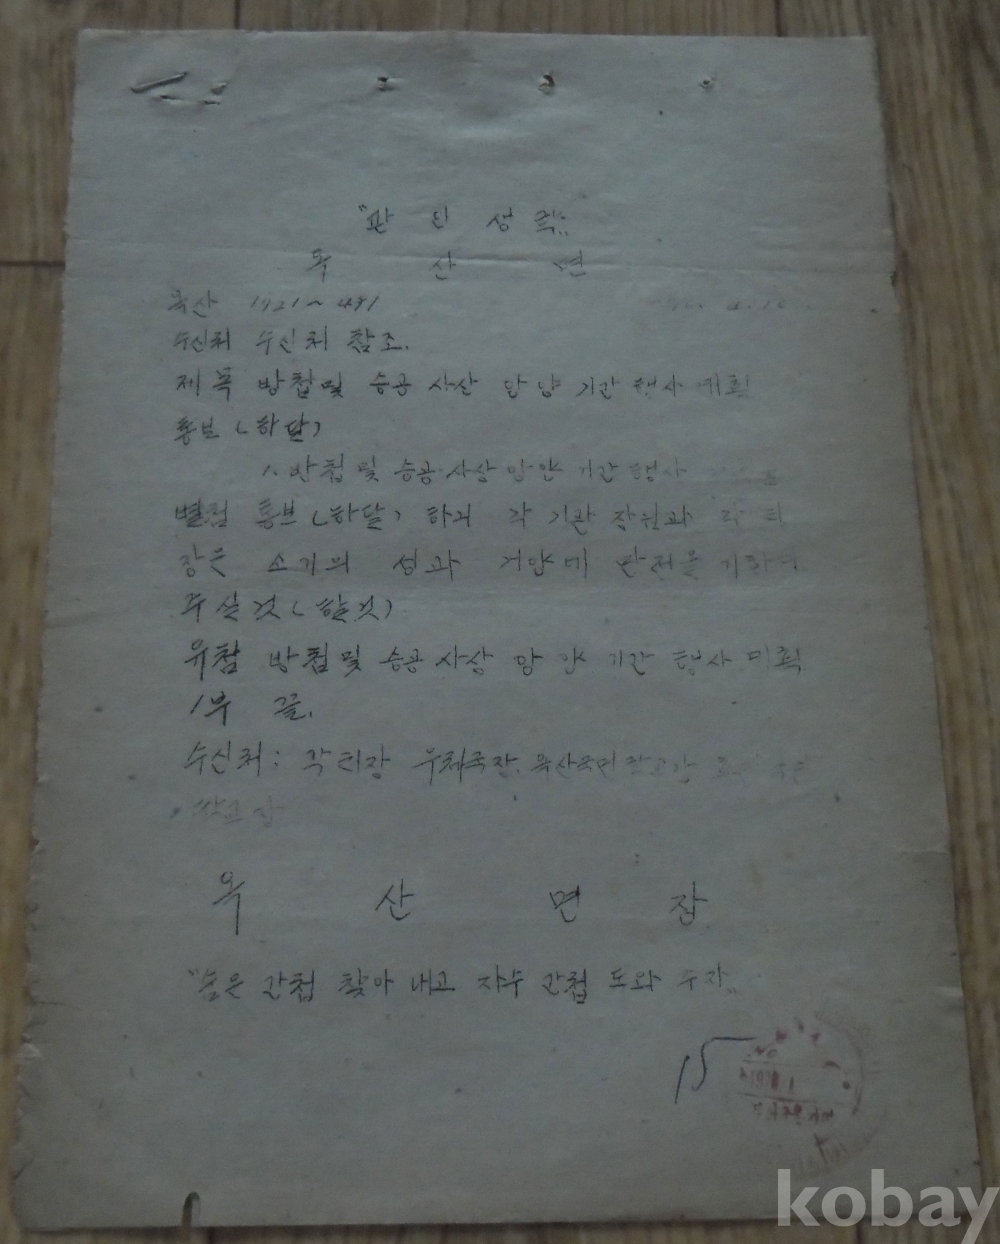 옥 산 면
옥산 1921~491
수신처 수신처 참조.
제목 방첩및 승공 사상 앙양 기간 행사 계획
통보(하달)
1. 방첩 및 승공 사상 앙양 기간 행사
별첨 통보(하달) 하니 각 기관 장
장은 소기의 성과 거양에 만전을 기하여
주실것(할것)
유첨 방첩및 승공 사상 앙양 기간 행사 계획
1부 끝.
수신처: 각리장 우체국장. 옥산국민학교장
학교장
옥 산 면 장
"숨은 간첩 찾아 내고 자수 간첩 도와 주자"
15
kobay